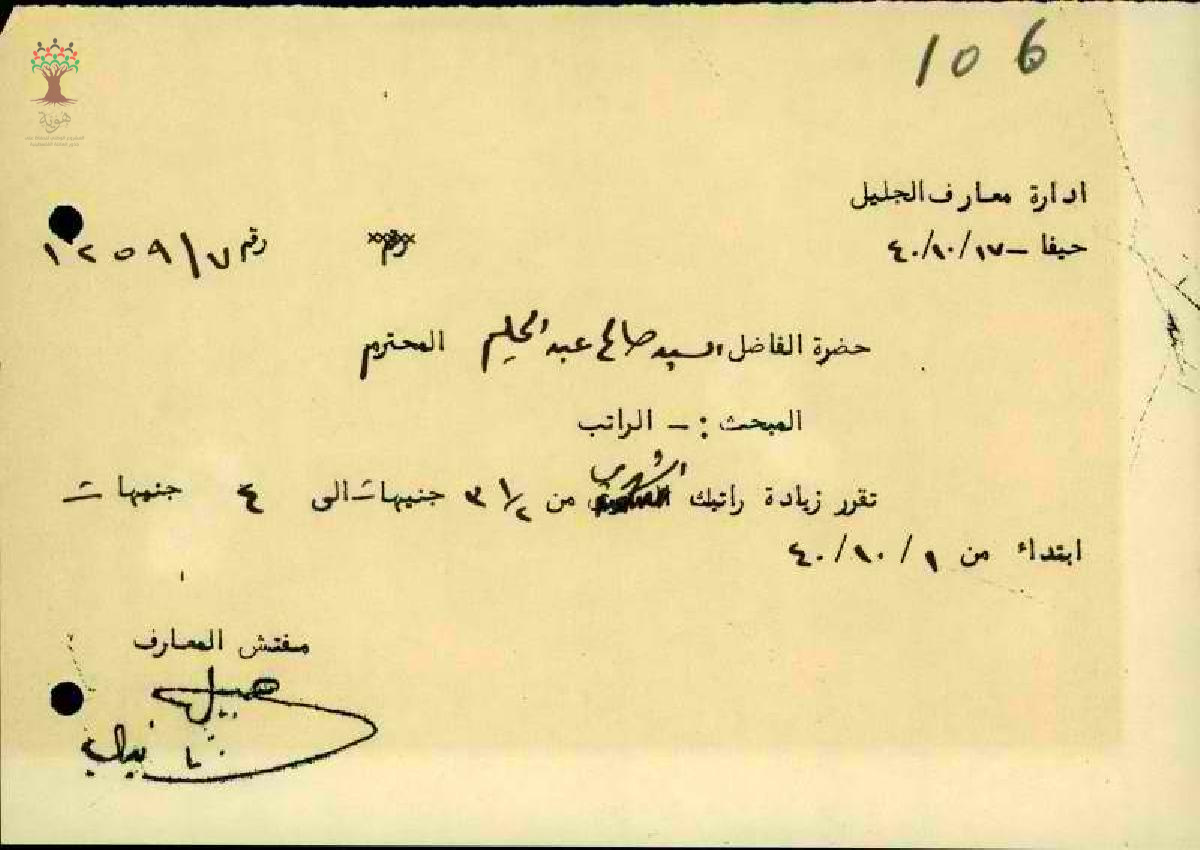 106
هوية
ادارة معارف الجليل
حيفا – ٤٠/١٠/١٧
رقم ٧/١٢٥٩
حضرة الفاضل السيد صالح عبد الحليم المحترم
المبحث :– الراتب
الشهري
تقرر زيادة راتبك من ٣ ١/٢ جنيهات الى ٤ جنيهات
ابتداء من ٤٠/١٠/١
مفتش المعارف